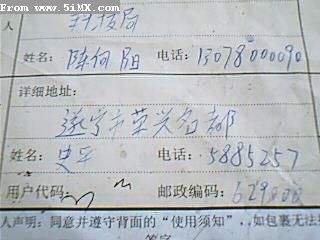 From www.5iMX.com
人
科技局
姓名: 陈何阳 电话: 13078000090
详细地址:
遂宁市荣兴名都
姓名: 史平 电话: 5885257
用户代码: 邮政编码: 629000
人声明: 同意并遵守背面的“使用须知”, .如包裹无法